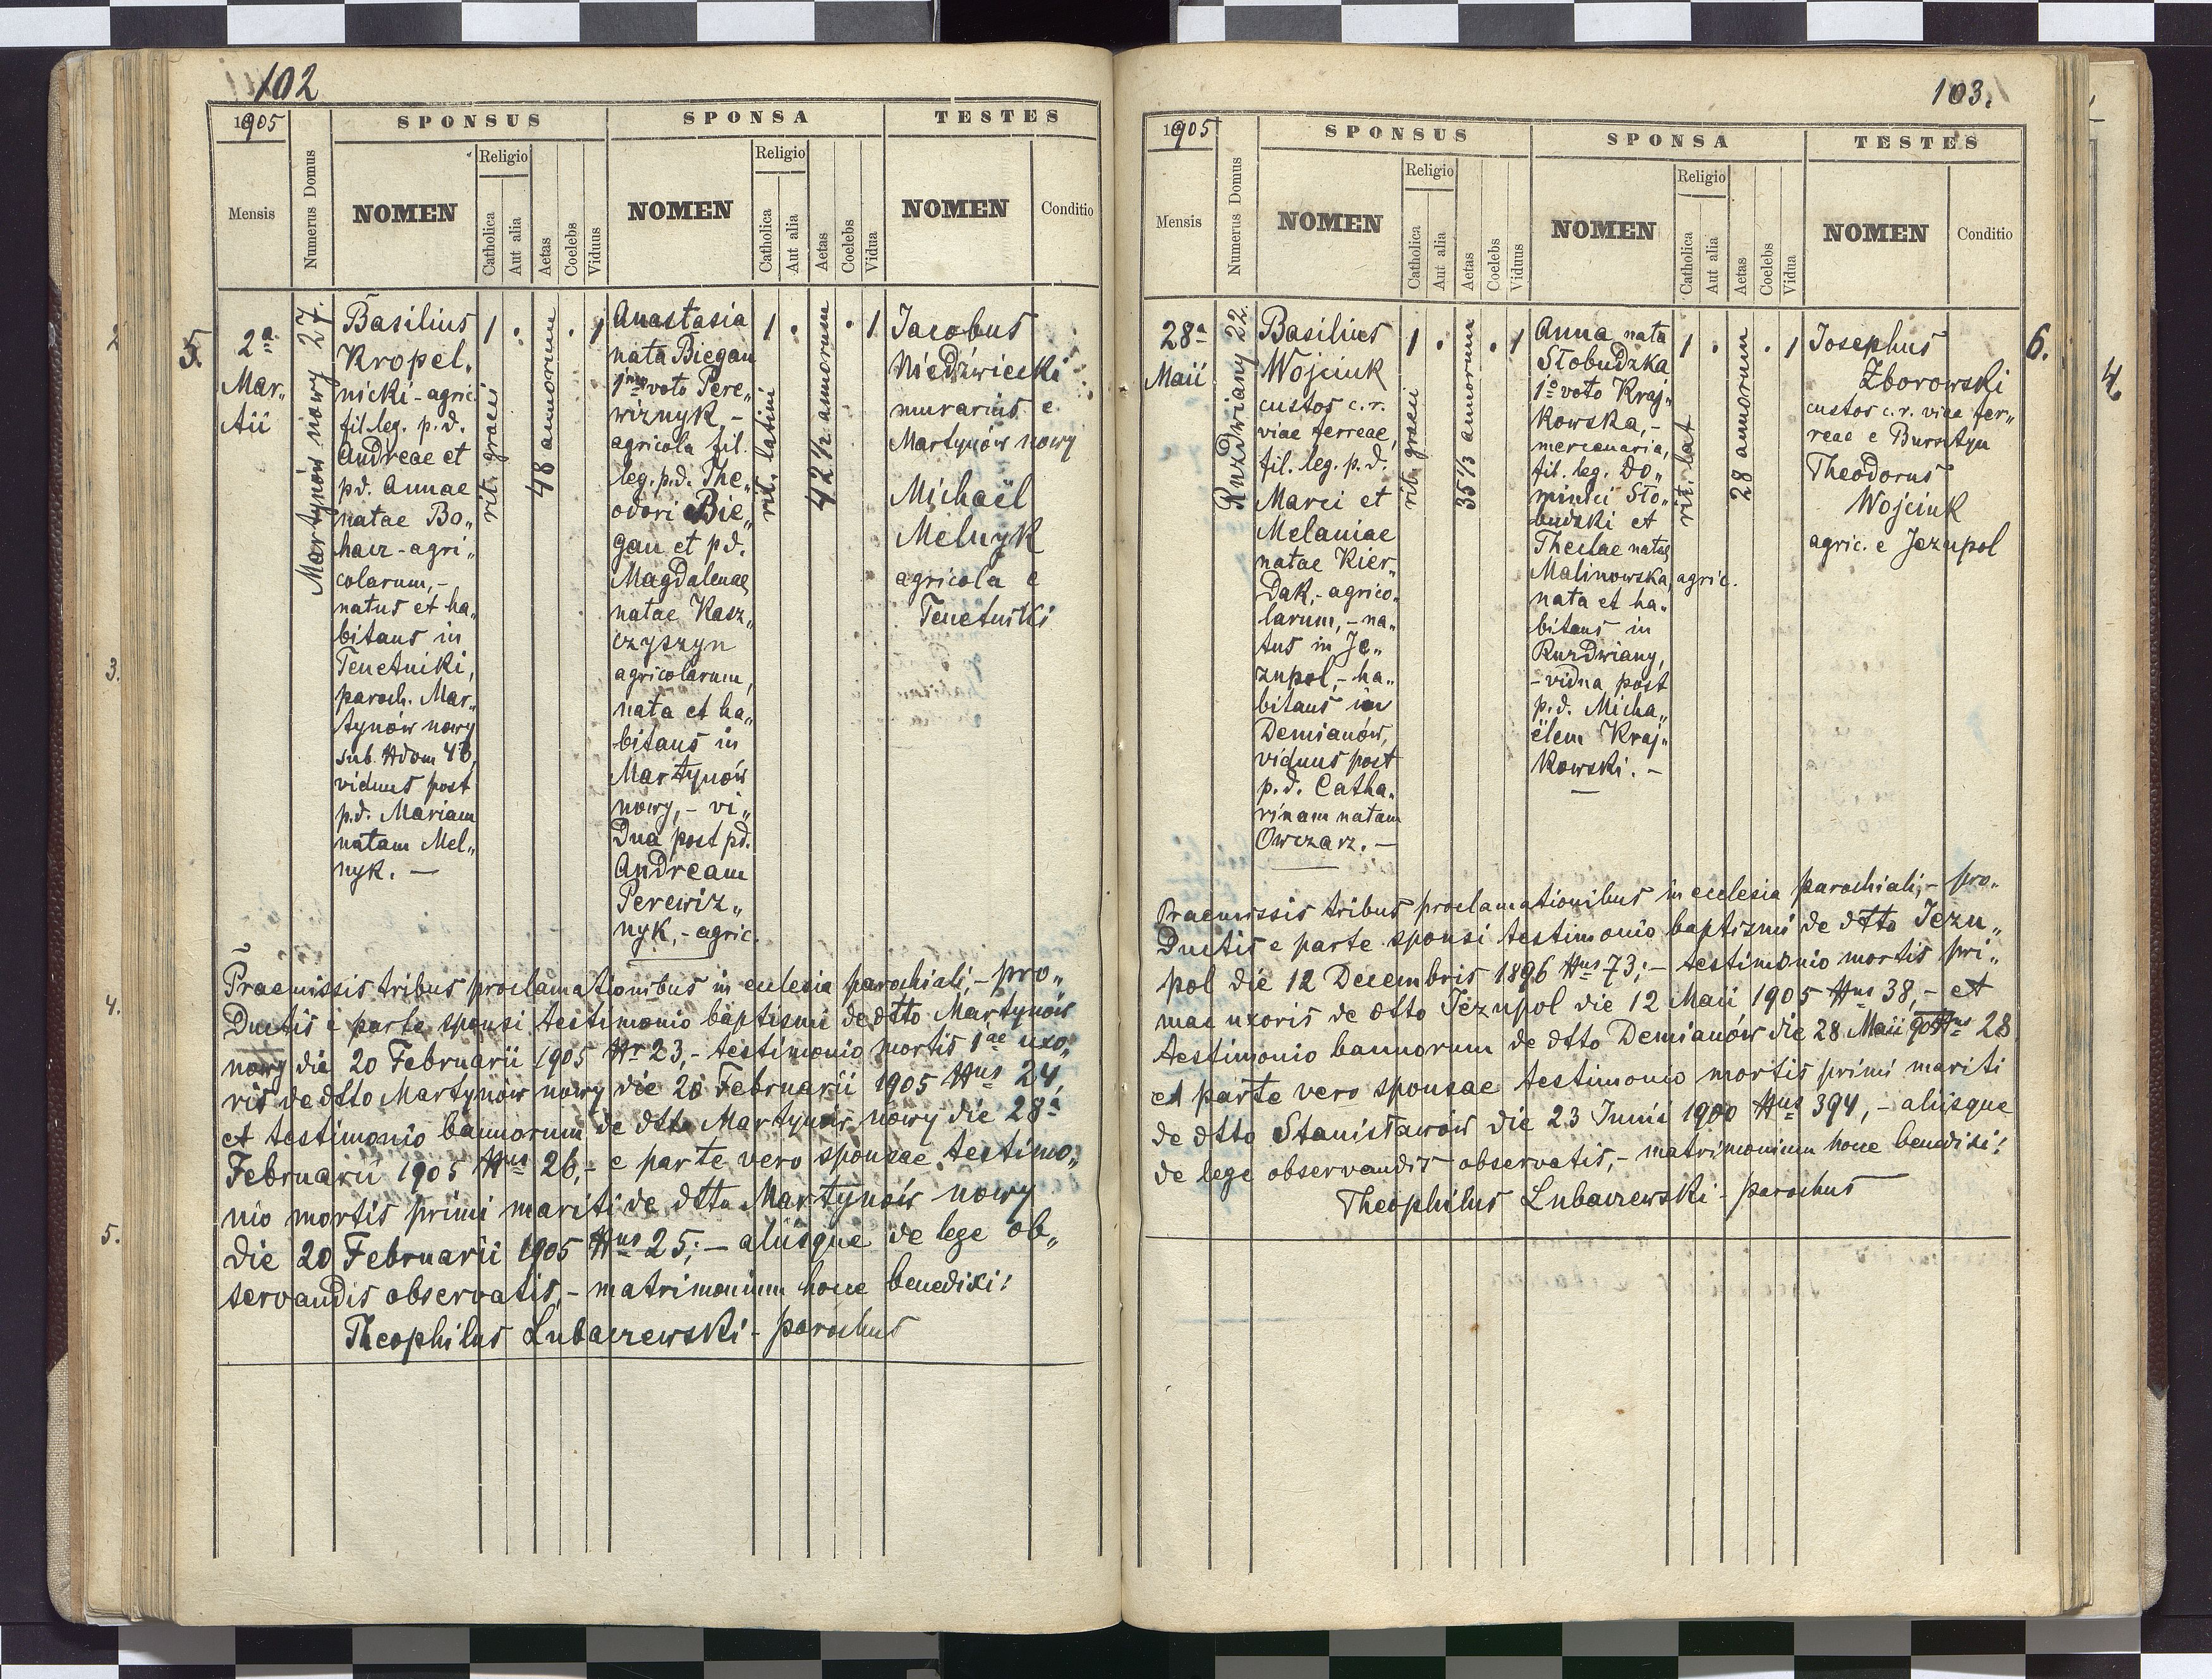 102
1905
SPONSUS
SPONSA
TESTES
Mensis
Numerus Domus
NOMEN
Religio
Catholica
Aut alia
Aetas
Coelebs
Viduus
NOMEN
Religio
Catholica
Aut alia
Aetas
Coelebs
Vidua
NOMEN
Conditio
5.
2a
Mar„
tii
Martynów nowy 27.
Basilius
Kropel„
nicki - agric.
fil. leg. p. d.
Andreae et
pd. Annae
natae Bo„
hacz - agri„
colarum, -
natus et ha„
bitans in
Tenetniki,
paroch. Mar„
tynów nowy
sub. Ndom 43,
viduus post
p.d. Mariam
natam Mel„
nyk. —
1 .
rit. graeci
48 annorum
. 1
Anastasia
nata Biegan
1mo voto Pere„
wiznyk, -
agricola fil.
leg. p.d. The„
odori Bie„
gan et pd.
Magdalenae
natae Kasz„
czyszyn
agricolarum,
nata et ha„
bitans in
Martynów
nowy, - vi„
dua post pd.
Andream
Perewiz„
nyk, - agric.
1 .
rit. latini
42 1/2 annorum
. 1
Jacobus
Niedźwiecki
murarius e
Martynów nowy
Michaël
Melnyk
agricola e
Tenetniki
Praemissis tribus proclamationibus in ecclesia parochiali, - pro„
ductis e parte sponsi testimonio baptismi de dtto Martynów
nowy die 20 Februarii 1905 Nr 23, - testimonio mortis 1ae uxo„
ris de dtto Martynów nowy die 20 Februarii 1905 Nus 24,
et testimonio bannorum de dtto Martynów nowy die 28a
Februarii 1905 Nus 26, - e parte vero sponsae testimo„
nio mortis primi mariti de dtto Martynów nowy
die 20 Februarii 1905 Nus 25; — aliisque de lege ob„
servandis observatis, - matrimonium hocce benedixi!
Theophilus Lubaczewski - parochus
103.
1905
SPONSUS
SPONSA
TESTES
Mensis
Numerus Domus
NOMEN
Religio
Catholica
Aut alia
Aetas
Coelebs
Viduus
NOMEN
Religio
Catholica
Aut alia
Aetas
Coelebs
Vidua
NOMEN
Conditio
6.
28a
Maii
Ruzdwiany 22.
Basilius
Wojciuk
custos c. r.
viae ferreae,
fil. leg. p. d.
Marci et
Melaniae
natae Kier„
dak, - agrico„
larum, - na„
tus in Je„
zupol, - ha„
bitans in
Demianów,
viduus post
p. d. Catha„
rinam natam
Owczarz. —
1 .
rit. graeci
35 1/3 annorum
. 1
Anna nata
Słobudzka
1o voto Kraj„
kowska, -
mercenaria,
fil. leg. Do„
minici Sło„
budzki et
Theclae natae
Malinowska, agric.
nata et ha„
bitans in
Ruzdwiany,
- vidua post
p. d. Micha„
ëlem Kraj„
kowski. —
1 .
rit. lat
28 annorum
. 1
Josephus
Zborowski
custos c. r. viae fer„
reae e Bursztyn
Theodorus
Wojciuk
agric. e Jezupol
Praemissis tribus proclamationibus in ecclesia parochiali, - pro„
ductis e parte sponsi testimonio baptismi de dtto Jezu„
pol die 12 Decembris 1896 Nus 73; - testimonio mortis pri„
mae uxoris de dtto Jezupol die 12 Maii 1905 Nus 38, - et
testimonio bannorum de dtto Demianów die 28 Maii 905 Nus 28
et parte vero sponsae testimonio mortis primi mariti
de dtto Stanisławów die 23 Junii 1900 Nus 394, - aliisque
de lege observandis observatis, - matrimonium hocce benedixi!
Theophilus Lubaczewski - parochus
2
3.
4.
5.
4.